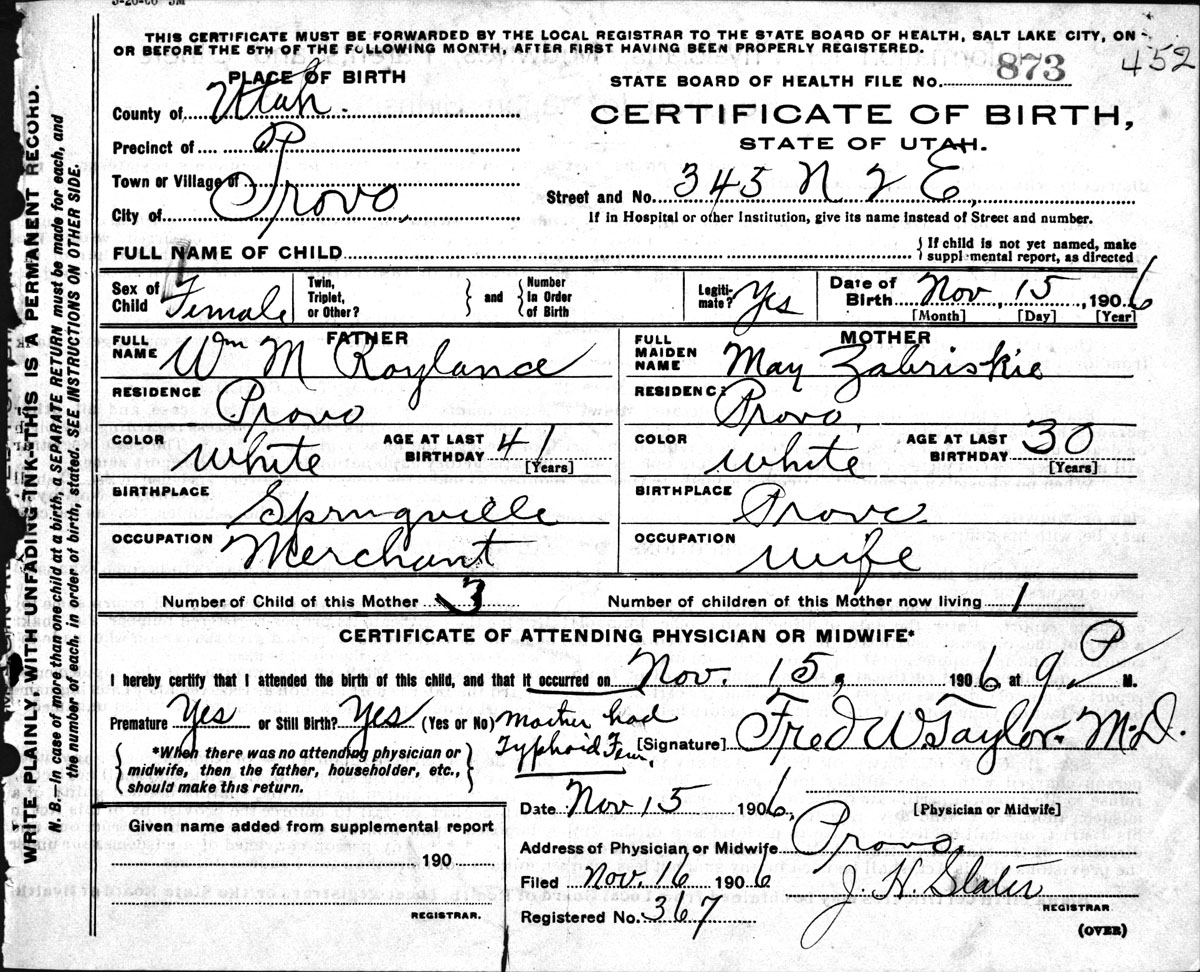 3-20-06 5M
THIS CERTIFICATE MUST BE FORWARDED BY THE LOCAL REGISTRAR TO THE STATE BOARD OF HEALTH, SALT LAKE CITY, ON
OR BEFORE THE 5TH OF THE FOLLOWING MONTH, AFTER FIRST HAVING BEEN PROPERLY REGISTERED.
452
PLACE OF BIRTH
STATE BOARD OF HEALTH FILE No. 873
County of Utah.
CERTIFICATE OF BIRTH,
STATE OF UTAH.
Precinct of
Town or Village of
City of Provo,
Street and No. 345 N 2 E,
If in Hospital or other Institution, give its name instead of Street and number.
FULL NAME OF CHILD
If child is not yet named, make
supplemental report, as directed
Sex of Child Female
Twin, Triplet, or Other?
and
Number In Order of Birth
Legiti-mate? Yes
Date of Birth Nov, 15, 1906
[Month] [Day] [Year]
FATHER
FULL NAME Wm M Roylance
RESIDENCE Provo
COLOR White
AGE AT LAST BIRTHDAY 41 [Years]
BIRTHPLACE Springville
OCCUPATION Merchant
MOTHER
FULL MAIDEN NAME May Zabriskie
RESIDENCE Provo,
COLOR White
AGE AT LAST BIRTHDAY 30 [Years]
BIRTHPLACE Provo
OCCUPATION Wife
Number of Child of this Mother 3
Number of children of this Mother now living 1
CERTIFICATE OF ATTENDING PHYSICIAN OR MIDWIFE*
I hereby certify that I attended the birth of this child, and that it occurred on Nov. 15, 1906, at 9 P M.
Premature Yes or Still Birth? Yes (Yes or No) Mother had
Typhoid Fever.
[Signature] Fred W. Taylor. M.D.
*When there was no attending physician or
midwife, then the father, householder, etc.,
should make this return.
Date Nov 15 1906,
[Physician or Midwife]
Given name added from supplemental report
190
REGISTRAR.
Address of Physician or Midwife Provo.
Filed Nov. 16 1906
J. H. Slater
REGISTRAR
Registered No. 367
(OVER)
WRITE PLAINLY, WITH UNFADING INK-THIS IS A PERMANENT RECORD.
N. B.—In case of more than one child at a birth, a SEPARATE RETURN must be made for each, and
the number of each, in order of birth, stated. SEE INSTRUCTIONS ON OTHER SIDE.